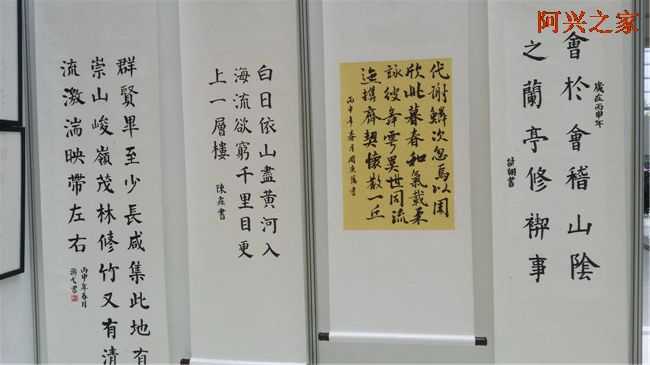 阿兴之家
會於會稽山陰
之蘭亭修禊事
歲在丙申年
代謝鱗次忽焉以周
欣此暮春和氣載柔
詠彼舞雩異世同流
迺携齊契懷散一丘
丙申年春月
白日依山盡黄河入
海流欲窮千里目更
上一層樓
群賢畢至少長咸集此地有
崇山峻嶺茂林修竹又有清
流激湍映帶左右
丙申年春月